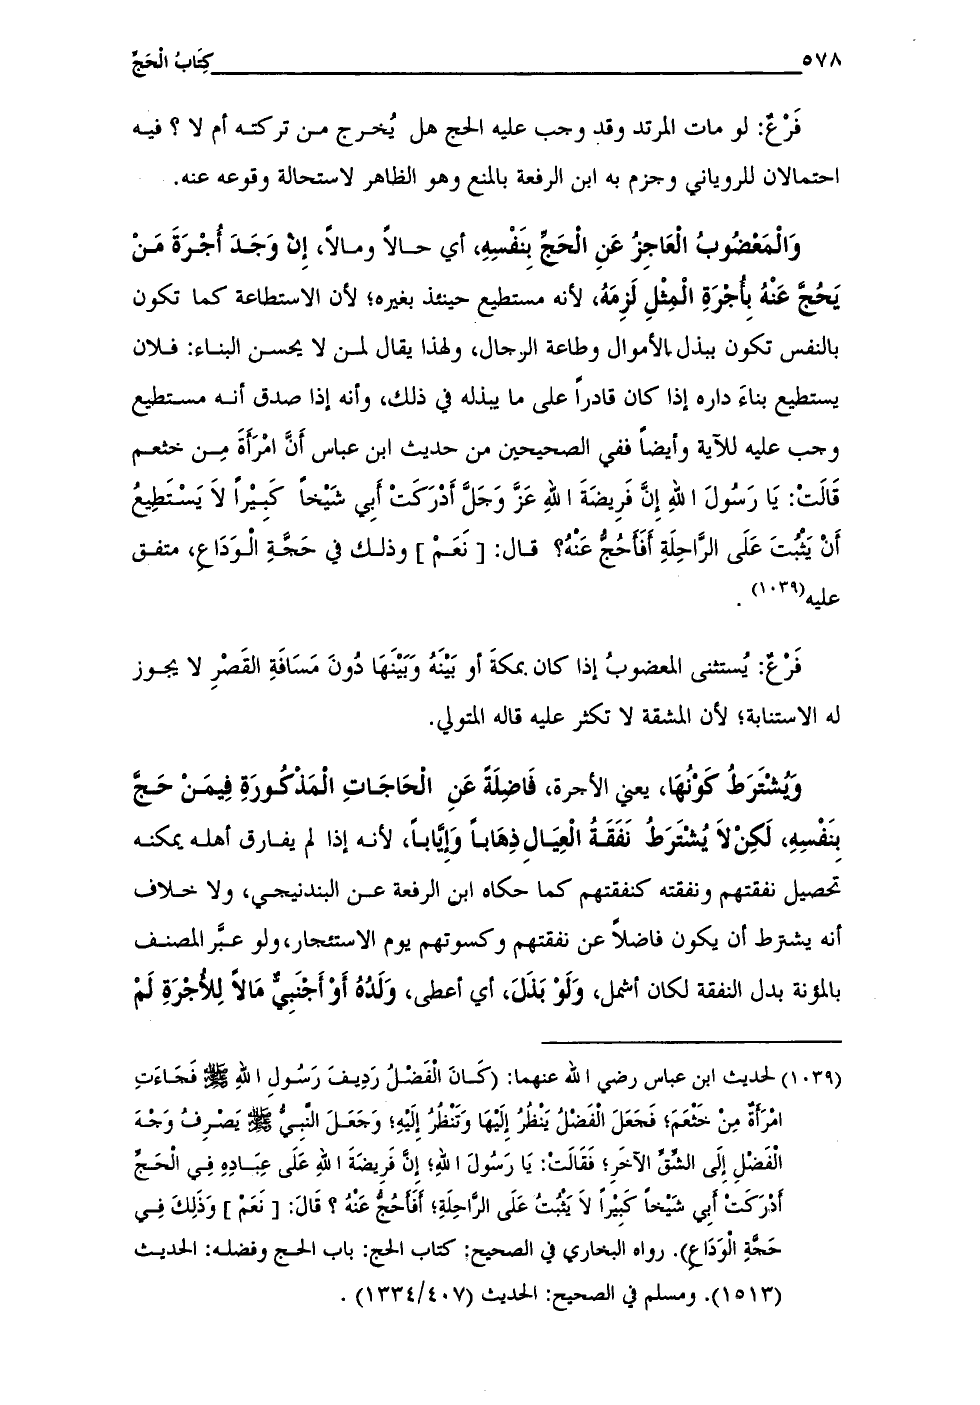 ٥٧٨ كِتَابُ الْحَجِّ
فَرْعٌ: لو مات المرتد وقد وجب عليه الحج هل يُخرج من تركته أم لا ؟ فيه
احتمالان للروياني وجزم به ابن الرفعة بالمنع وهو الظاهر لاستحالة وقوعه عنه.
وَالْمَعْضُوبُ الْعَاجِزُ عَنِ الْحَجِّ بِنَفْسِهِ، أي حالاً ومالاً، إِنْ وَجَدَ أُجْرَةَ مَنْ
يَحُجُّ عَنْهُ بِأُجْرَةِ الْمِثْلِ لَزِمَهُ، لأنه مستطيع حينئذ بغيره؛ لأن الاستطاعة كما تكون
بالنفس تكون ببذل الأموال وطاعة الرجال، ولهذا يقال لمن لا يحسن البناء: فلان
يستطيع بناءَ داره إذا كان قادراً على ما يبذله في ذلك، وأنه إذا صدق أنه مستطيع
وجب عليه للآية وأيضاً ففي الصحيحين من حديث ابن عباس أَنَّ امْرَأَةَ مِن خثعم
قَالَتْ: يَا رَسُولَ اللهِ إِنَّ فَرِيضَةَ اللهِ عَزَّ وَجَلَّ أَدْرَكَتْ أَبِي شَيْخاً كَبِيْراً لاَ يَسْتَطِيعُ
أَنْ يَثْبُتَ عَلَى الرَّاحِلَةِ أَفَأَحُجُّ عَنْهُ؟ قال: [ نَعَمْ ] وذلك في حَجَّةِ الْوَدَاعِ، متفق
عليه(١٠٣٩) .
فَرْعٌ: يُستثنى المعضوبُ إذا كان بمكةَ أو بَيْنَهُ وَبَيْنَهَا دُونَ مَسَافَةِ القَصْرِ لا يجوز
له الاستنابة؛ لأن المشقة لا تكثر عليه قاله المتولي.
وَيُشْتَرَطُ كَوْنُهَا، يعني الأجرة، فَاضِلَةً عَنِ الْحَاجَاتِ الْمَذْكُورَةِ فِيمَنْ حَجَّ
بِنَفْسِهِ، لَكِنْ لاَ يُشْتَرَطُ نَفَقَةُ الْعِيَالِ ذِهَاباً وَإِيَّاباً، لأنه إذا لم يفارق أهله يمكنه
تحصيل نفقتهم ونفقته كنفقتهم كما حكاه ابن الرفعة عن البندنيجي، ولا خلاف
أنه يشترط أن يكون فاضلاً عن نفقتهم وكسوتهم يوم الاستئجار،ولو عبَّر المصنف
بالمؤنة بدل النفقة لكان أشمل، وَلَوْ بَذَلَ، أي أعطى، وَلَدُهُ أَوْ أَجْنَبِيٌّ مَالاً لِلأُجْرَةِ لَمْ
(١٠٣٩) لحديث ابن عباس رضي الله عنهما: (كَانَ الْفَضْلُ رَدِيفَ رَسُولِ اللهِ ﷺ فَجَاءَتِ
امْرَأَةٌ مِنْ خَثْعَمَ؛ فَجَعَلَ الْفَضْلُ يَنْظُرُ إِلَيْهَا وَتَنْظُرُ إِلَيْهِ؛ وَجَعَلَ النَّبِيُّ ﷺ يَصْرِفُ وَجْهَ
الْفَضْلِ إِلَى الشِّقِّ الآخَرِ؛ فَقَالَتْ: يَا رَسُولَ اللهِ؛ إِنَّ فَرِيضَةَ اللهِ عَلَى عِبَادِهِ فِي الْحَجِّ
أَدْرَكَتْ أَبِي شَيْخاً كَبِيْراً لاَ يَثْبُتُ عَلَى الرَّاحِلَةِ؛ أَفَأَحُجُّ عَنْهُ ؟ قَالَ: [ نَعَمْ ] وَذَلِكَ فِي
حَجَّةِ الْوَدَاعِ). رواه البخاري في الصحيح: كتاب الحج: باب الحج وفضله: الحديث
(١٥١٣). ومسلم في الصحيح: الحديث (١٣٣٤/٤٠٧) .